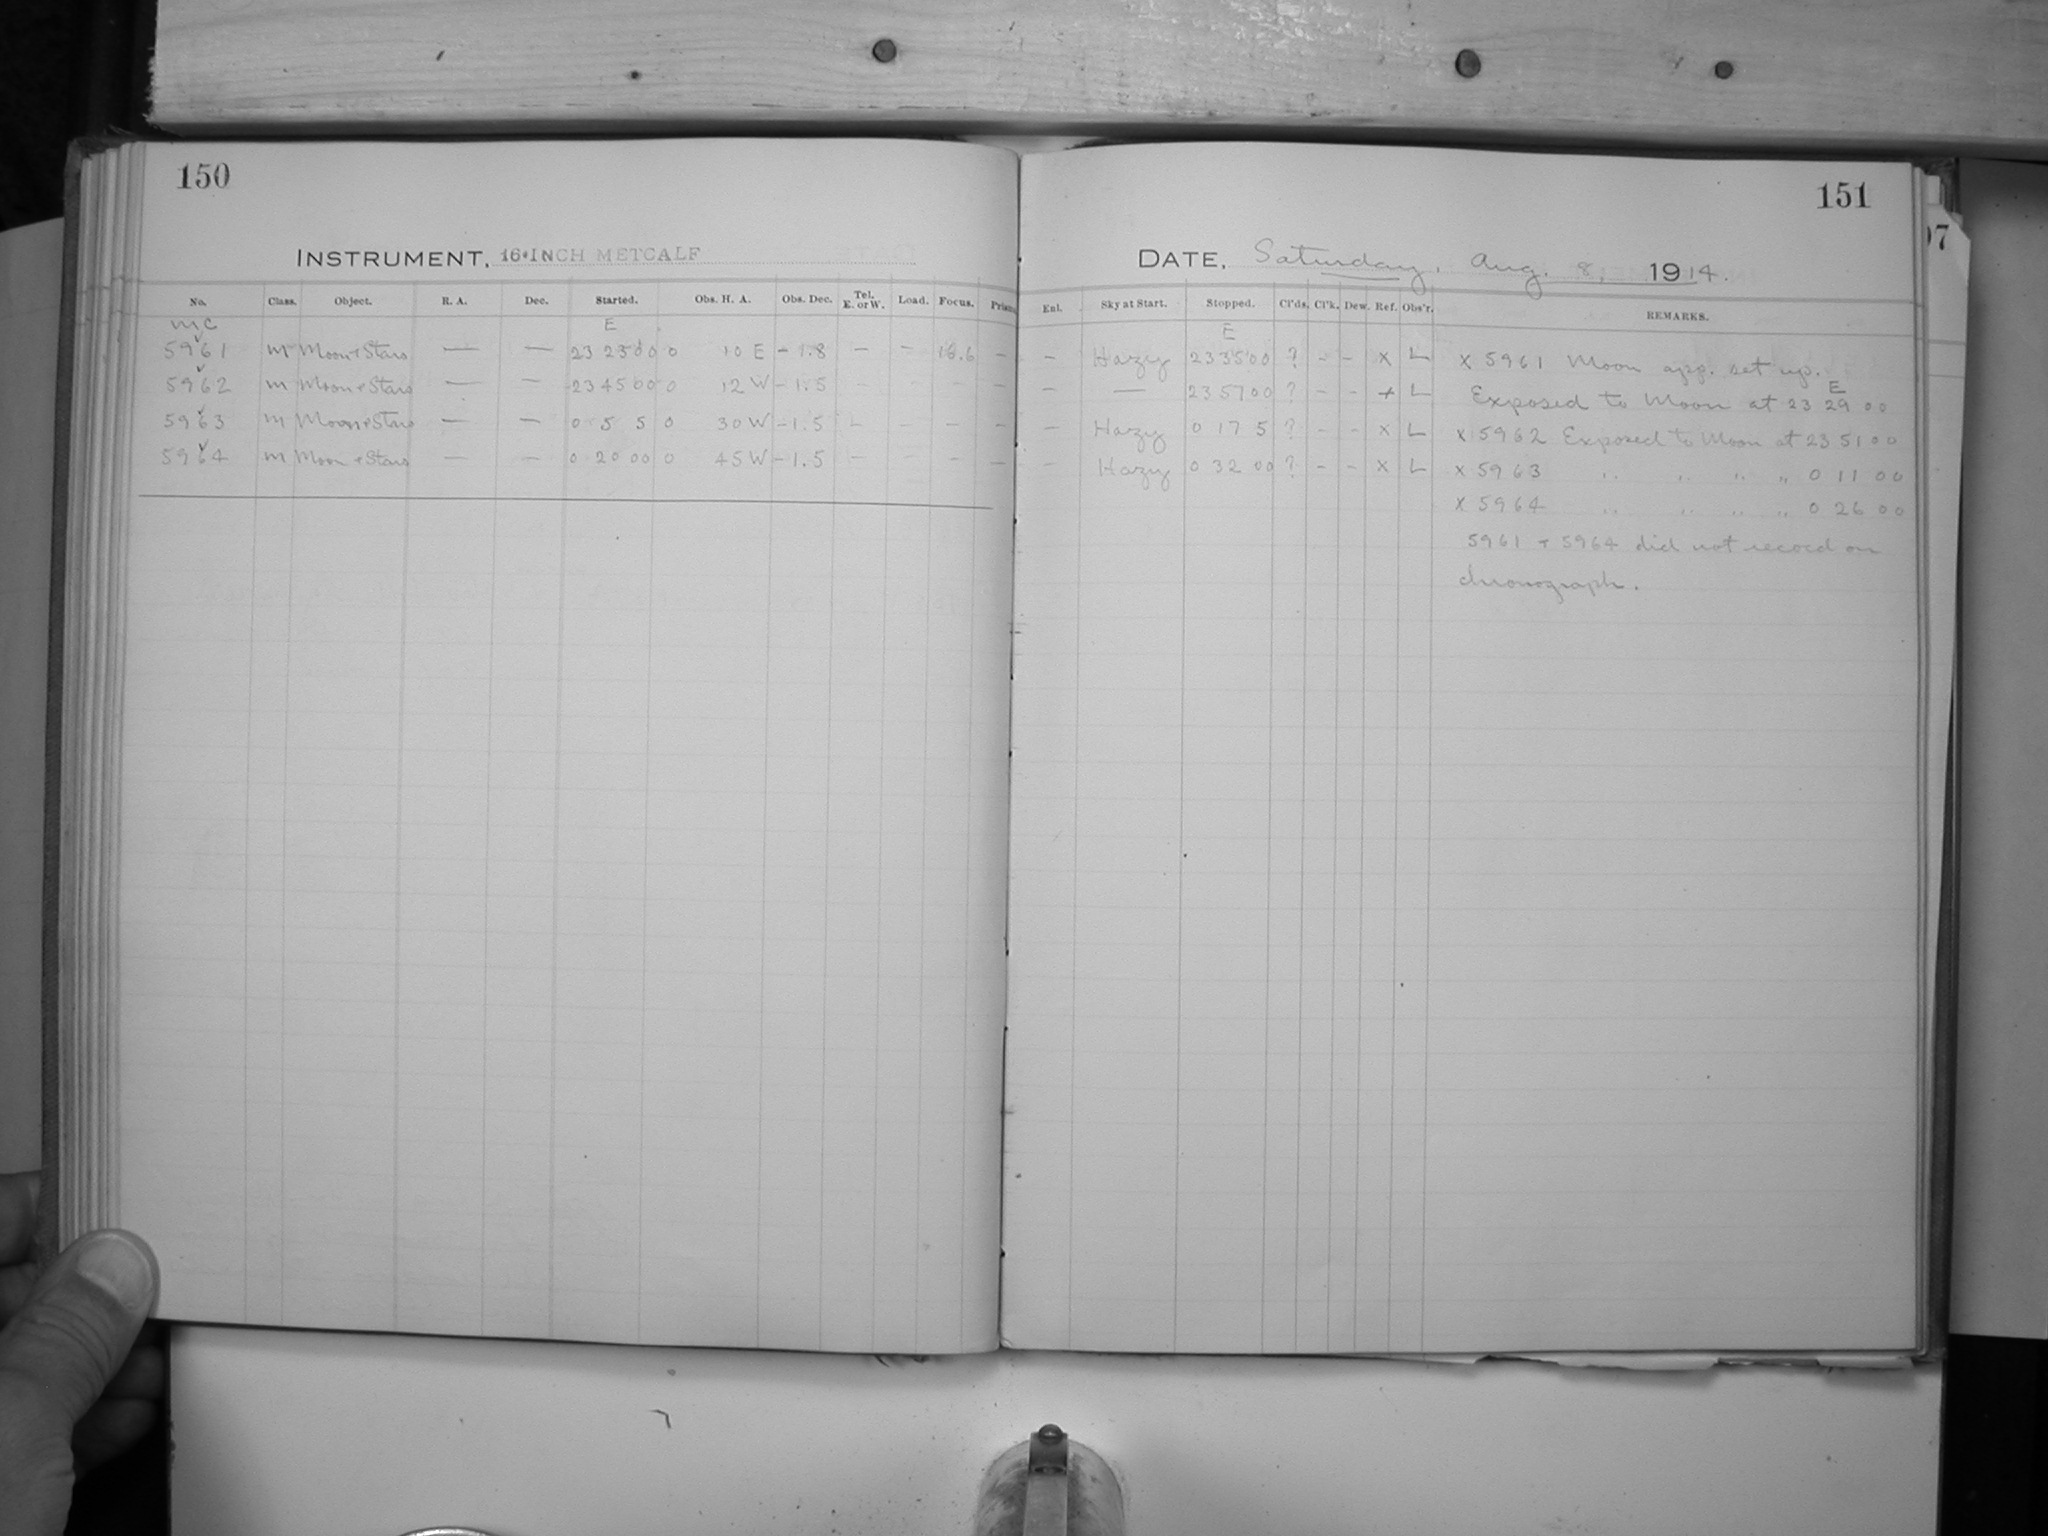 150
INSTRUMENT, 16-INCH METCALF
No. Class. Object. R. A. Dec. Started. Obs. H. A. Obs. Dec. Tel. E. or W. Load. Focus. Prism
MC E
5961 M Moon + Stars — — 23 25 00 0 10 E - 1.8 — — 16.6 —
5962 M Moon + Stars — — 23 45 00 0 12 W - 1.5 — — — —
5963 M Moon + Stars — — 0 5 5 0 30 W - 1.5 — — — —
5964 M Moon + Stars — — 0 20 00 0 45 W - 1.5 — — — —
151
DATE, Saturday, Aug. 8, 1914.
Enl. Sky at Start. Stopped. Cl'ds. Cl'k. Dew. Ref. Obs'r. REMARKS.
E
— Hazy 23 35 00 ? - - x L x 5961 Moon app. set up.
— — 23 57 00 ? - - x L Exposed to Moon at 23 29 00 E
— Hazy 0 17 5 ? - - x L x 5962 Exposed to Moon at 23 51 00
— Hazy 0 32 00 ? - - x L x 5963 " " " " 0 11 00
x 5964 " " " " 0 26 00
5961 + 5964 did not record on
chronograph.
97